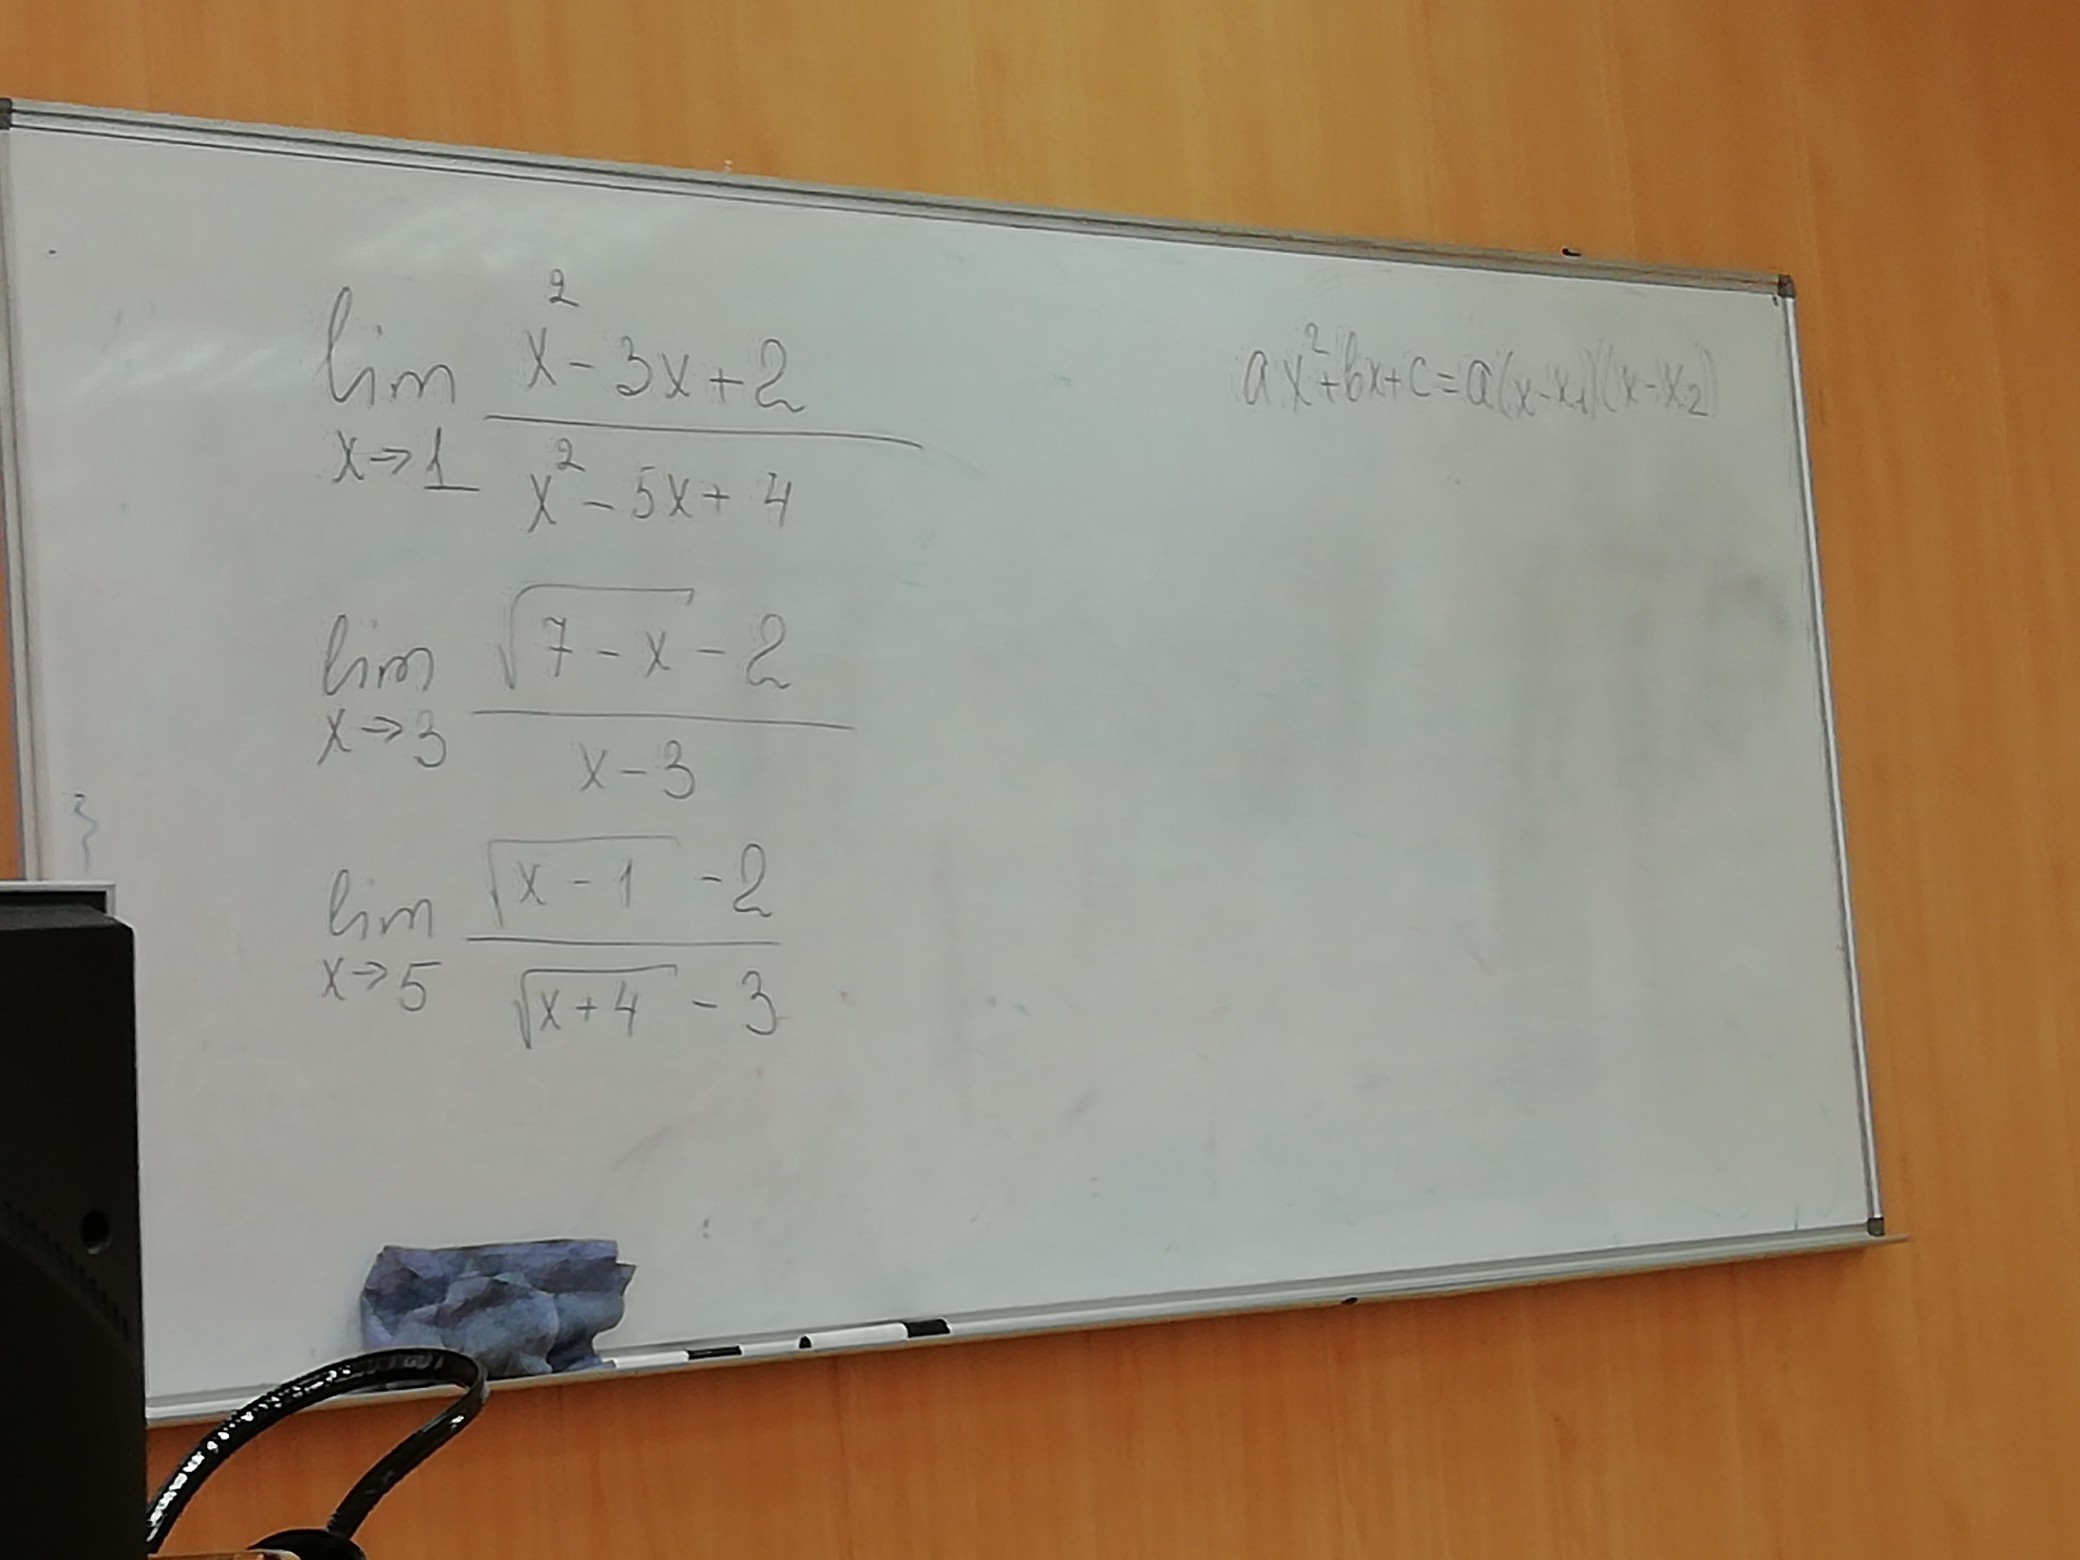 lim x→1 (x² - 3x + 2) / (x² - 5x + 4)
ax² + bx + c = a(x - x₁)(x - x₂)
lim x→3 (√(7 - x) - 2) / (x - 3)
lim x→5 (√(x - 1) - 2) / (√(x + 4) - 3)